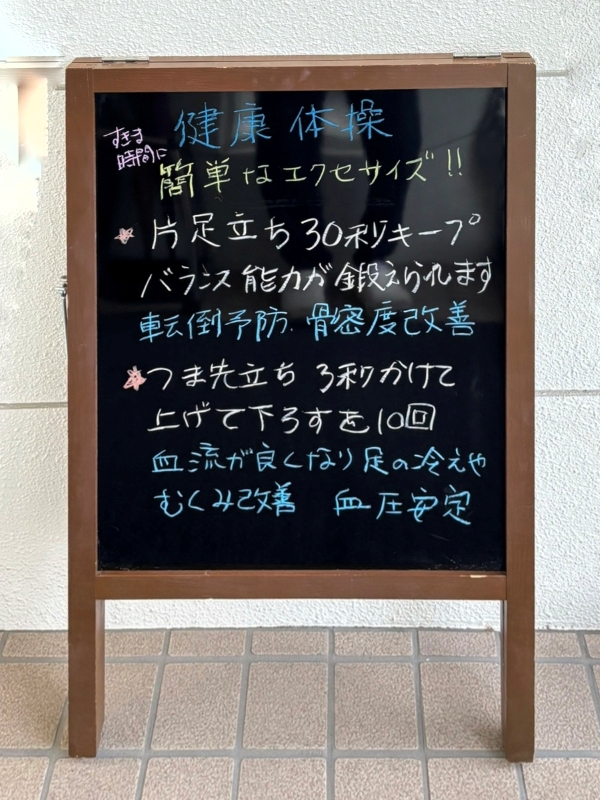 健康体操
すきま
時間に
簡単なエクセサイズ!!
片足立ち30秒キープ
バランス能力が鍛えられます
転倒予防.骨密度改善
つま先立ち 3秒かけて
上げて下ろすを10回
血流が良くなり足の冷えや
むくみ改善 血圧安定